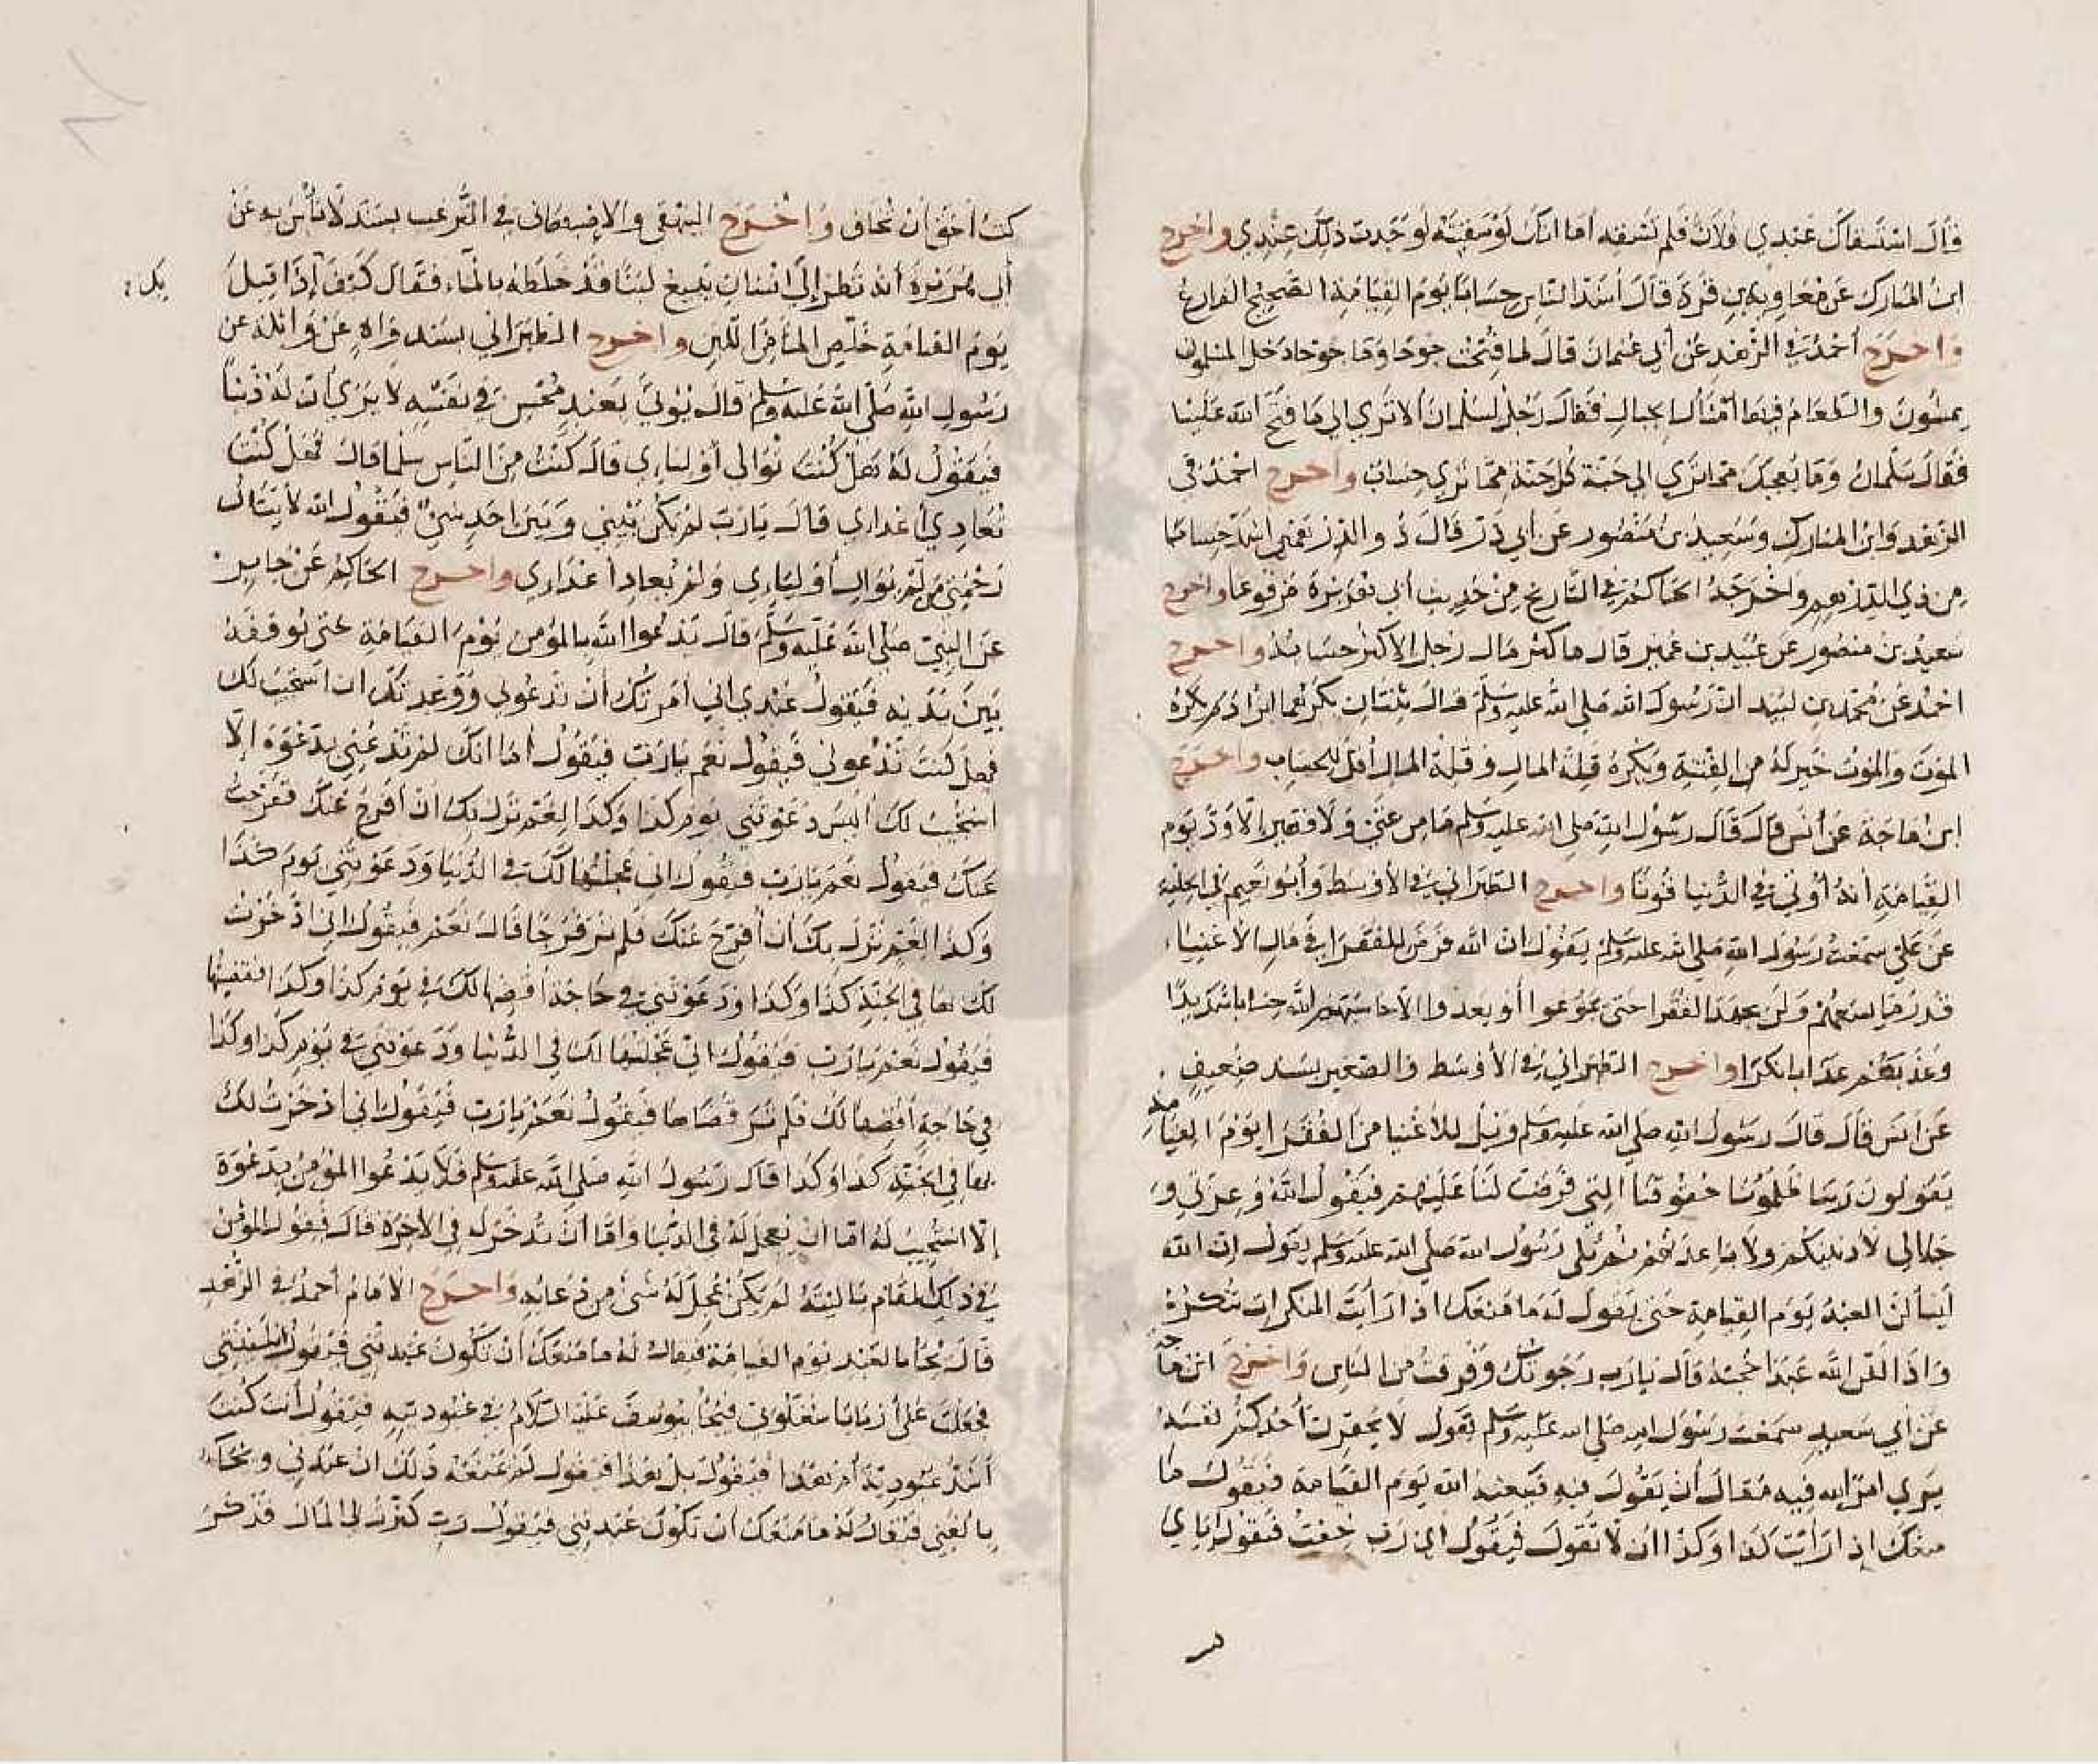 قال استسقاك عبدي فلان فلم تسقه أما انك لو سقيته لوجدت ذلك عندي واخرج
ابن المبارك عن معاوية بن قرة قال أشد الناس حسابا يوم القيامة الصحيح الفارغ
واخرج أحمد في الزهد عن أبي عثمان قال لما فتحت جوخا وقا جوخا دخل المسلمون
يمشون والطعام فيها أمثال الجبال فقال رجل لسلمان ألا تري الي ما فتح الله علينا
فقال سلمان وما يعجبك مما تري الي جنب كل حبة مما تري حساب واخرج احمد في
الزهد وابن المبارك وسعيد بن منصور عن أبي ذر قال ذو الدرهمين اشد حسابا
من ذي الدرهم واخرجه الحاكم في التاريخ من حديث أبي هريرة مرفوعا واخرج
سعيد بن منصور عن عبيد بن عمير قال ما كثر مال رجل الا كثر حسابه واخرج
احمد عن محمود بن لبيد ان رسول الله صلى الله عليه وسلم قال ثنتان يكرههما ابن ادم يكره
الموت والموت خير له من الفتنة ويكره قلة المال وقلة المال أقل للحساب واخرج
ابن ماجة عن أنس قال قال رسول الله صلى الله عليه وسلم ما من غني ولا فقير الا ود يوم
القيامة أنه أوتي في الدنيا قوتا واخرج الطبراني في الأوسط وأبو نعيم في الحلية
عن علي سمعت رسول الله صلى الله عليه وسلم يقول ان الله فرض للفقرا في مال الأغنيا
قدر ما يسعهم ولن يجهد الفقرا حتى يجوعوا أو يعروا الا حاسبهم الله حسابا شديدا
وعذبهم عذابا نكرا واخرج الطبراني في الأوسط والصغير بسند ضعيف
عن انس قال قال رسول الله صلى الله عليه وسلم ويل للاغنيا من الفقرا يوم القيامة
يقولون ربنا ظلمونا حقوقنا التي فرضت لنا عليهم فيقول الله وعزتي و
جلالي لأدنينكم ولأباعدنهم ثم تلى رسول الله صلى الله عليه وسلم يقول ان الله
ليسأل العبد يوم القيامة حتى يقول له ما منعك اذا رأيت المنكر ان تنكره
واذا لقن الله عبدا حجته قال يارب رجوتك وفرقت من الناس واخرج ابن ماجه
عن أبي سعيد سمعت رسول الله صلى الله عليه وسلم يقول لا يحقرن أحدكم نفسه
يري امرا لله فيه مقال أن يقول فيه فيبعثه الله يوم القيامة فيقول ما
منعك إذ رأيت كذا وكذا ان لا تقول فيقول اي رب خفت فيقول اياي
كنت أحق أن تخاف واخرج البيهقي والاصبهاني في الترغيب بسند لا بأس به عن
أبي هريرة أنه نظر إلي انسان يبيع لبنا قد خلطه بالماء فقال كيف إذا قيل
بك
يوم القيامة خلص الماء من اللبن واخرج الطبراني بسند واه عن واثلة عن
رسول الله صلى الله عليه وسلم قال يؤتي بعبد محسن في نفسه لا يري أن له ذنبا
فيقول له هل كنت توالي أوليايي قال كنت من الناس سلما قال فهل كنت
تعادي أعدايي قال يارب لم يكن بيني وبين احد شئ فيقول الله لا ينال
رحمتي من لم يوال أوليايي ولم يعاد أعدايي واخرج الحاكم عن جابر
عن النبي صلى الله عليه وسلم قال يدعوا الله بالمؤمن يوم القيامة حتى يوقفه
بين يديه فيقول عبدي اني أمرتك أن تدعوني ووعدتك ان استجب لك
فهل كنت تدعوني فيقول نعم يارب فيقول أما انك لم تدعني بدعوة إلا
استجبت لك أليس دعوتني يوم كذا وكذا لغم نزل بك ان أفرج عنك ففرجت
عنك فيقول نعم يارب فيقول اني عجلتها لك في الدنيا ودعوتني يوم كذا
وكذا لغم نزل بك أن أفرج عنك فلم تر فرجا قال نعم فيقول اني اذخرت
لك بها في الجنة كذا وكذا ودعوتني في حاجة أقضها لك في يوم كذا وكذا فقضيتها
فيقول نعم يارب فيقول اني عجلتها لك في الدنيا ودعوتني في يوم كذا وكذا
في حاجة أقضها لك فلم تر قضاها فيقول نعم يارب فيقول اني اذخرت لك
بها في الجنة كذا وكذا قال رسول الله صلى الله عليه وسلم فلا يدعوا المؤمن بدعوة
إلا استجيب له اما ان يعجل له في الدنيا واما ان تدخر له في الاخرة قال فيقول المؤمن
في ذلك المقام يا ليته لم يكن عجل له شئ من دعائه واخرج الامام أحمد في الزهد
قال يجا بالعبد يوم القيامة فيقال له ما منعك أن تكون عبدتني فيقول ابتليتني
فجعلت علي أربابا شغلوني فيجا بيوسف عليه السلام في عبوديته فيقول أنت كنت
أشد عبودية أم هذا فيقول بل هذا فيقول لم يمنعه ذلك ان عبدني ويجا
بالغني فيقال له ما منعك ان تكون عبدتني فيقول رب كثرت لي المال فذكر